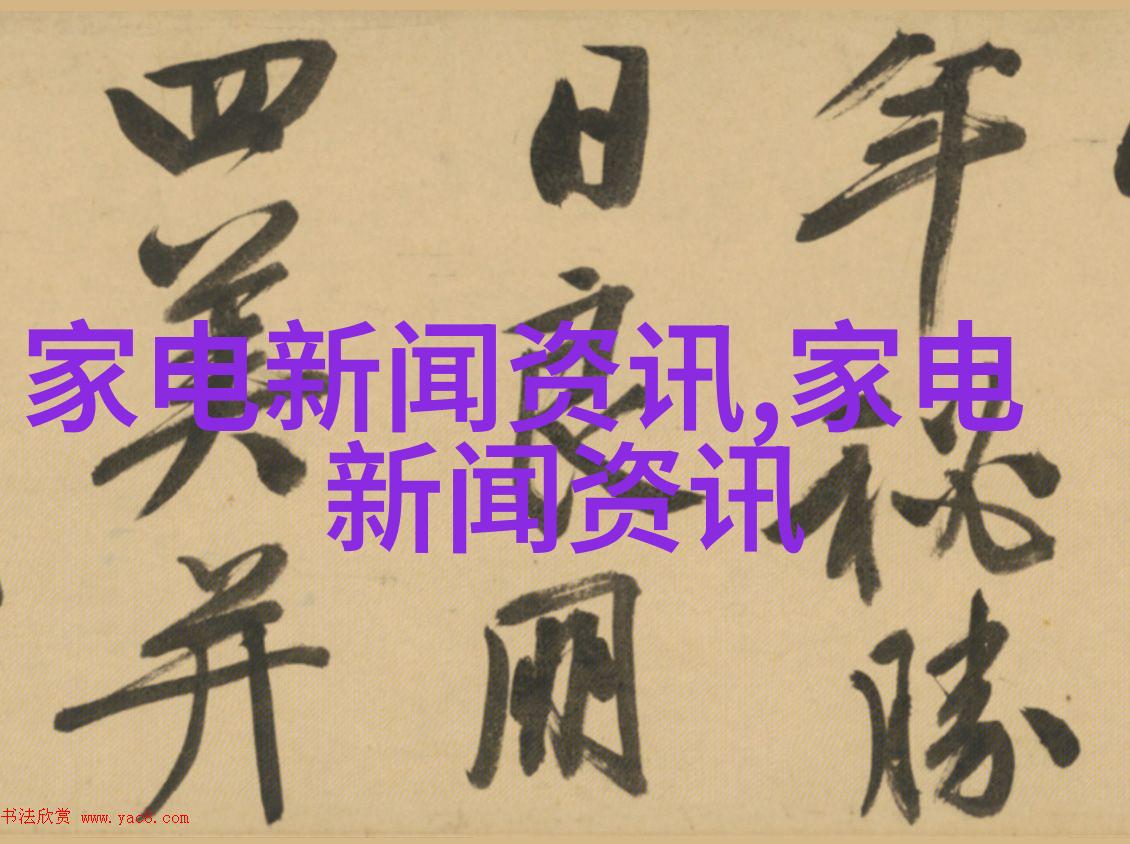 家电新闻资讯,家电
新闻资讯
年秘勝
日良朋
四美并
书法欣赏 www.yac8.com